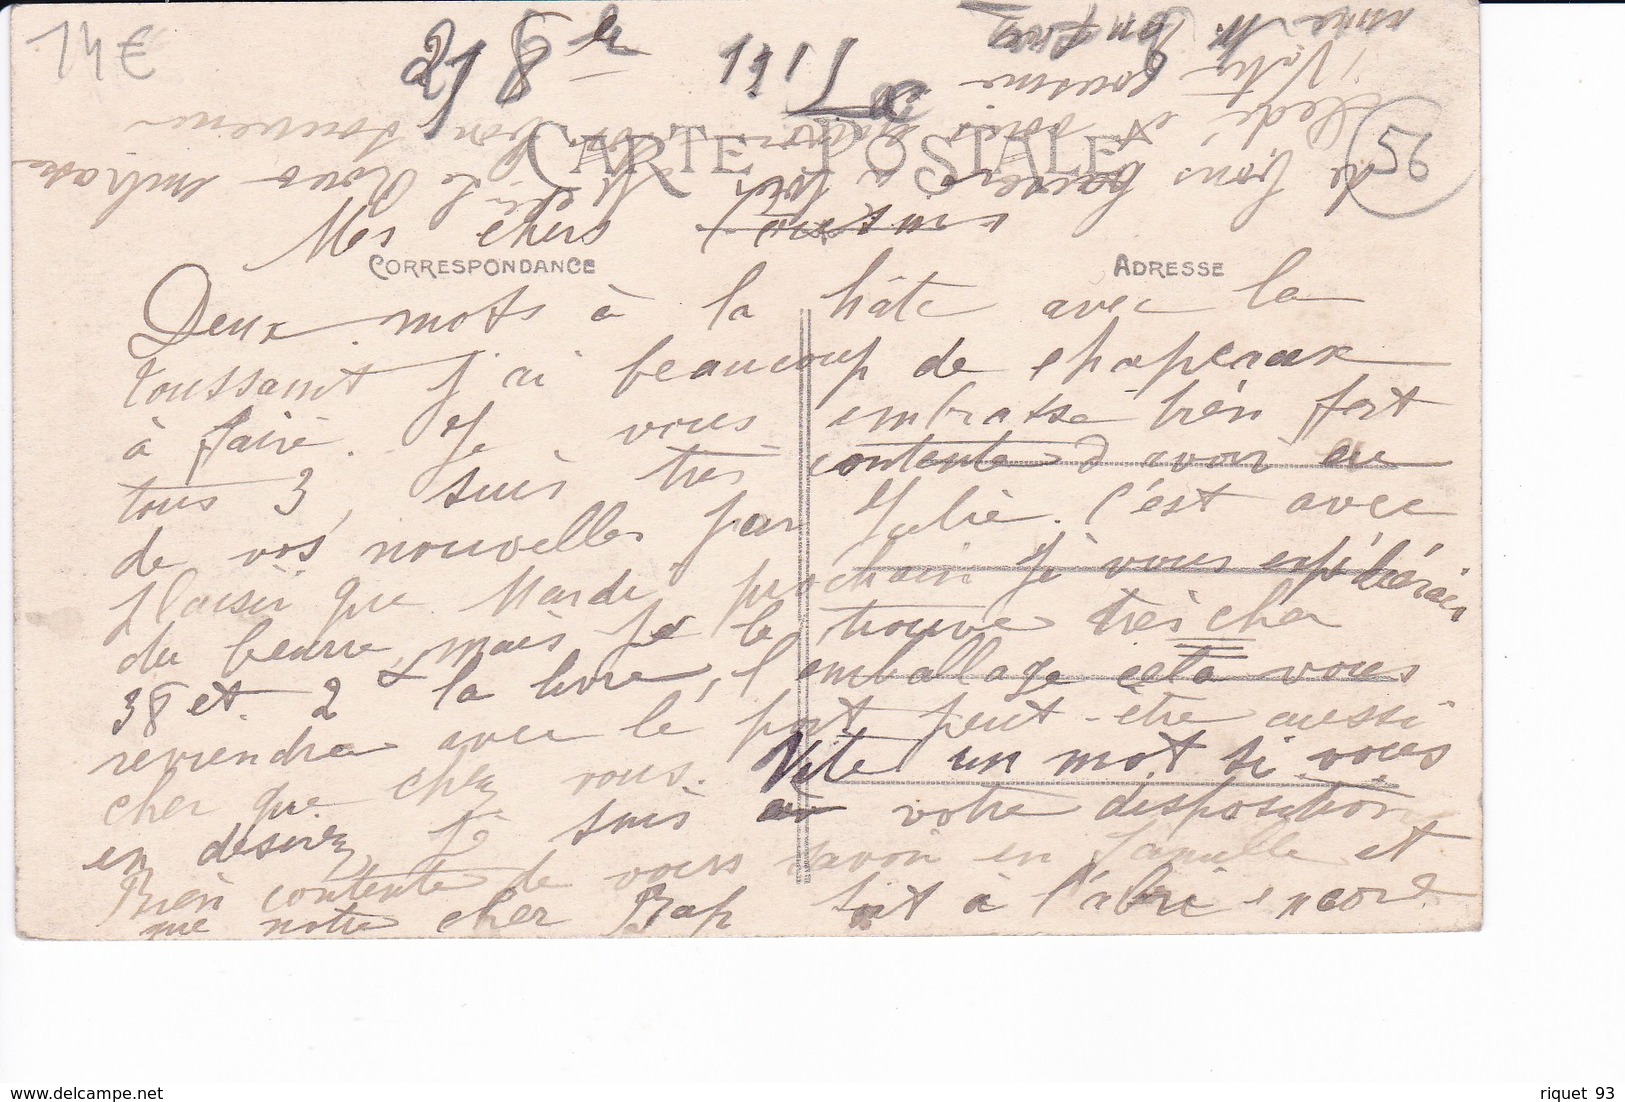 14€
21 8bre 191
CARTE POSTALE
56
Mes chers Cousins
CORRESPONDANCE
ADRESSE
Deux mots à la hâte avec la
toussaint j'ai beaucoup de chapeaux
à faire. Je vous embrasse bien fort
tous 3, suis très contente d'avoir eu
de vos nouvelles par Julie. C'est avec
plaisir que Mardi prochain je vous expédierai
du beurre, mais je le trouve très cher
38 et 2 la livre, l'emballage cela vous
reviendra avec le port peut-être aussi
cher que chez vous. Vite un mot si vous
en désirez je suis votre disposition
Bien contente de vous savoir en famille et
que notre cher Bap soit à l'abri encore
bons baisers
et bon souvenir
Votre cousine
riquet 93